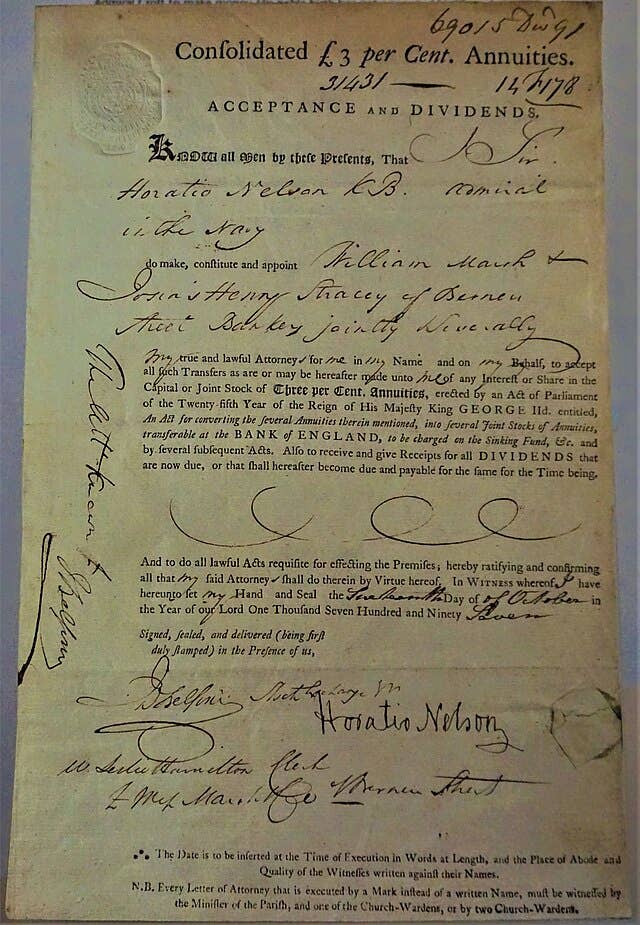 69015 Div 91
Confolidated £3 per Cent. Annuities.
31431 — 14 178
ACCEPTANCE AND DIVIDENDS.
KNOW all Men by thefe Prefents, That I Sir
Horatio Nelson K B. admiral
in the Navy
do make, conftitute and appoint William Marsh &
Josias Henry Stracey of Berners
Street Bankers jointly & severally
my true and lawful Attorneys for me in my Name and on my Behalf, to accept
all fuch Transfers as are or may be hereafter made unto me of any Intereft or Share in the
Capital or Joint Stock of Three per Cent. Annuities, erected by an Act of Parliament
of the Twenty-fifth Year of the Reign of His Majefty King GEORGE IId. entitled,
An Act for converting the feveral Annuities therein mentioned, into feveral Joint Stocks of Annuities,
transferable at the BANK of ENGLAND, to be charged on the Sinking Fund, &c. and
by feveral fubfequent Acts. Alfo to receive and give Receipts for all DIVIDENDS that
are now due, or that fhall hereafter become due and payable for the fame for the Time being.
And to do all lawful Acts requifite for effecting the Premifes; hereby ratifying and confirming
all that my faid Attorneys fhall do therein by Virtue hereof. In WITNESS whereof I have
hereunto fet my Hand and Seal the Day of of October in
the Year of our Lord One Thoufand Seven Hundred and Ninety Seven
Signed, fealed, and delivered (being firft
duly ftamped) in the Prefence of us,
Horatio Nelson
W. Leslie Hamilton Clerk
Marsh & Co Berners Street
⁂ The Date is to be inferted at the Time of Execution in Words at Length, and the Place of Abode and
Quality of the Witneffes written againft their Names.
N.B. Every Letter of Attorney that is executed by a Mark inftead of a written Name, muft be witneffed by
the Minifter of the Parifh, and one of the Church-Wardens, or by two Church-Wardens.